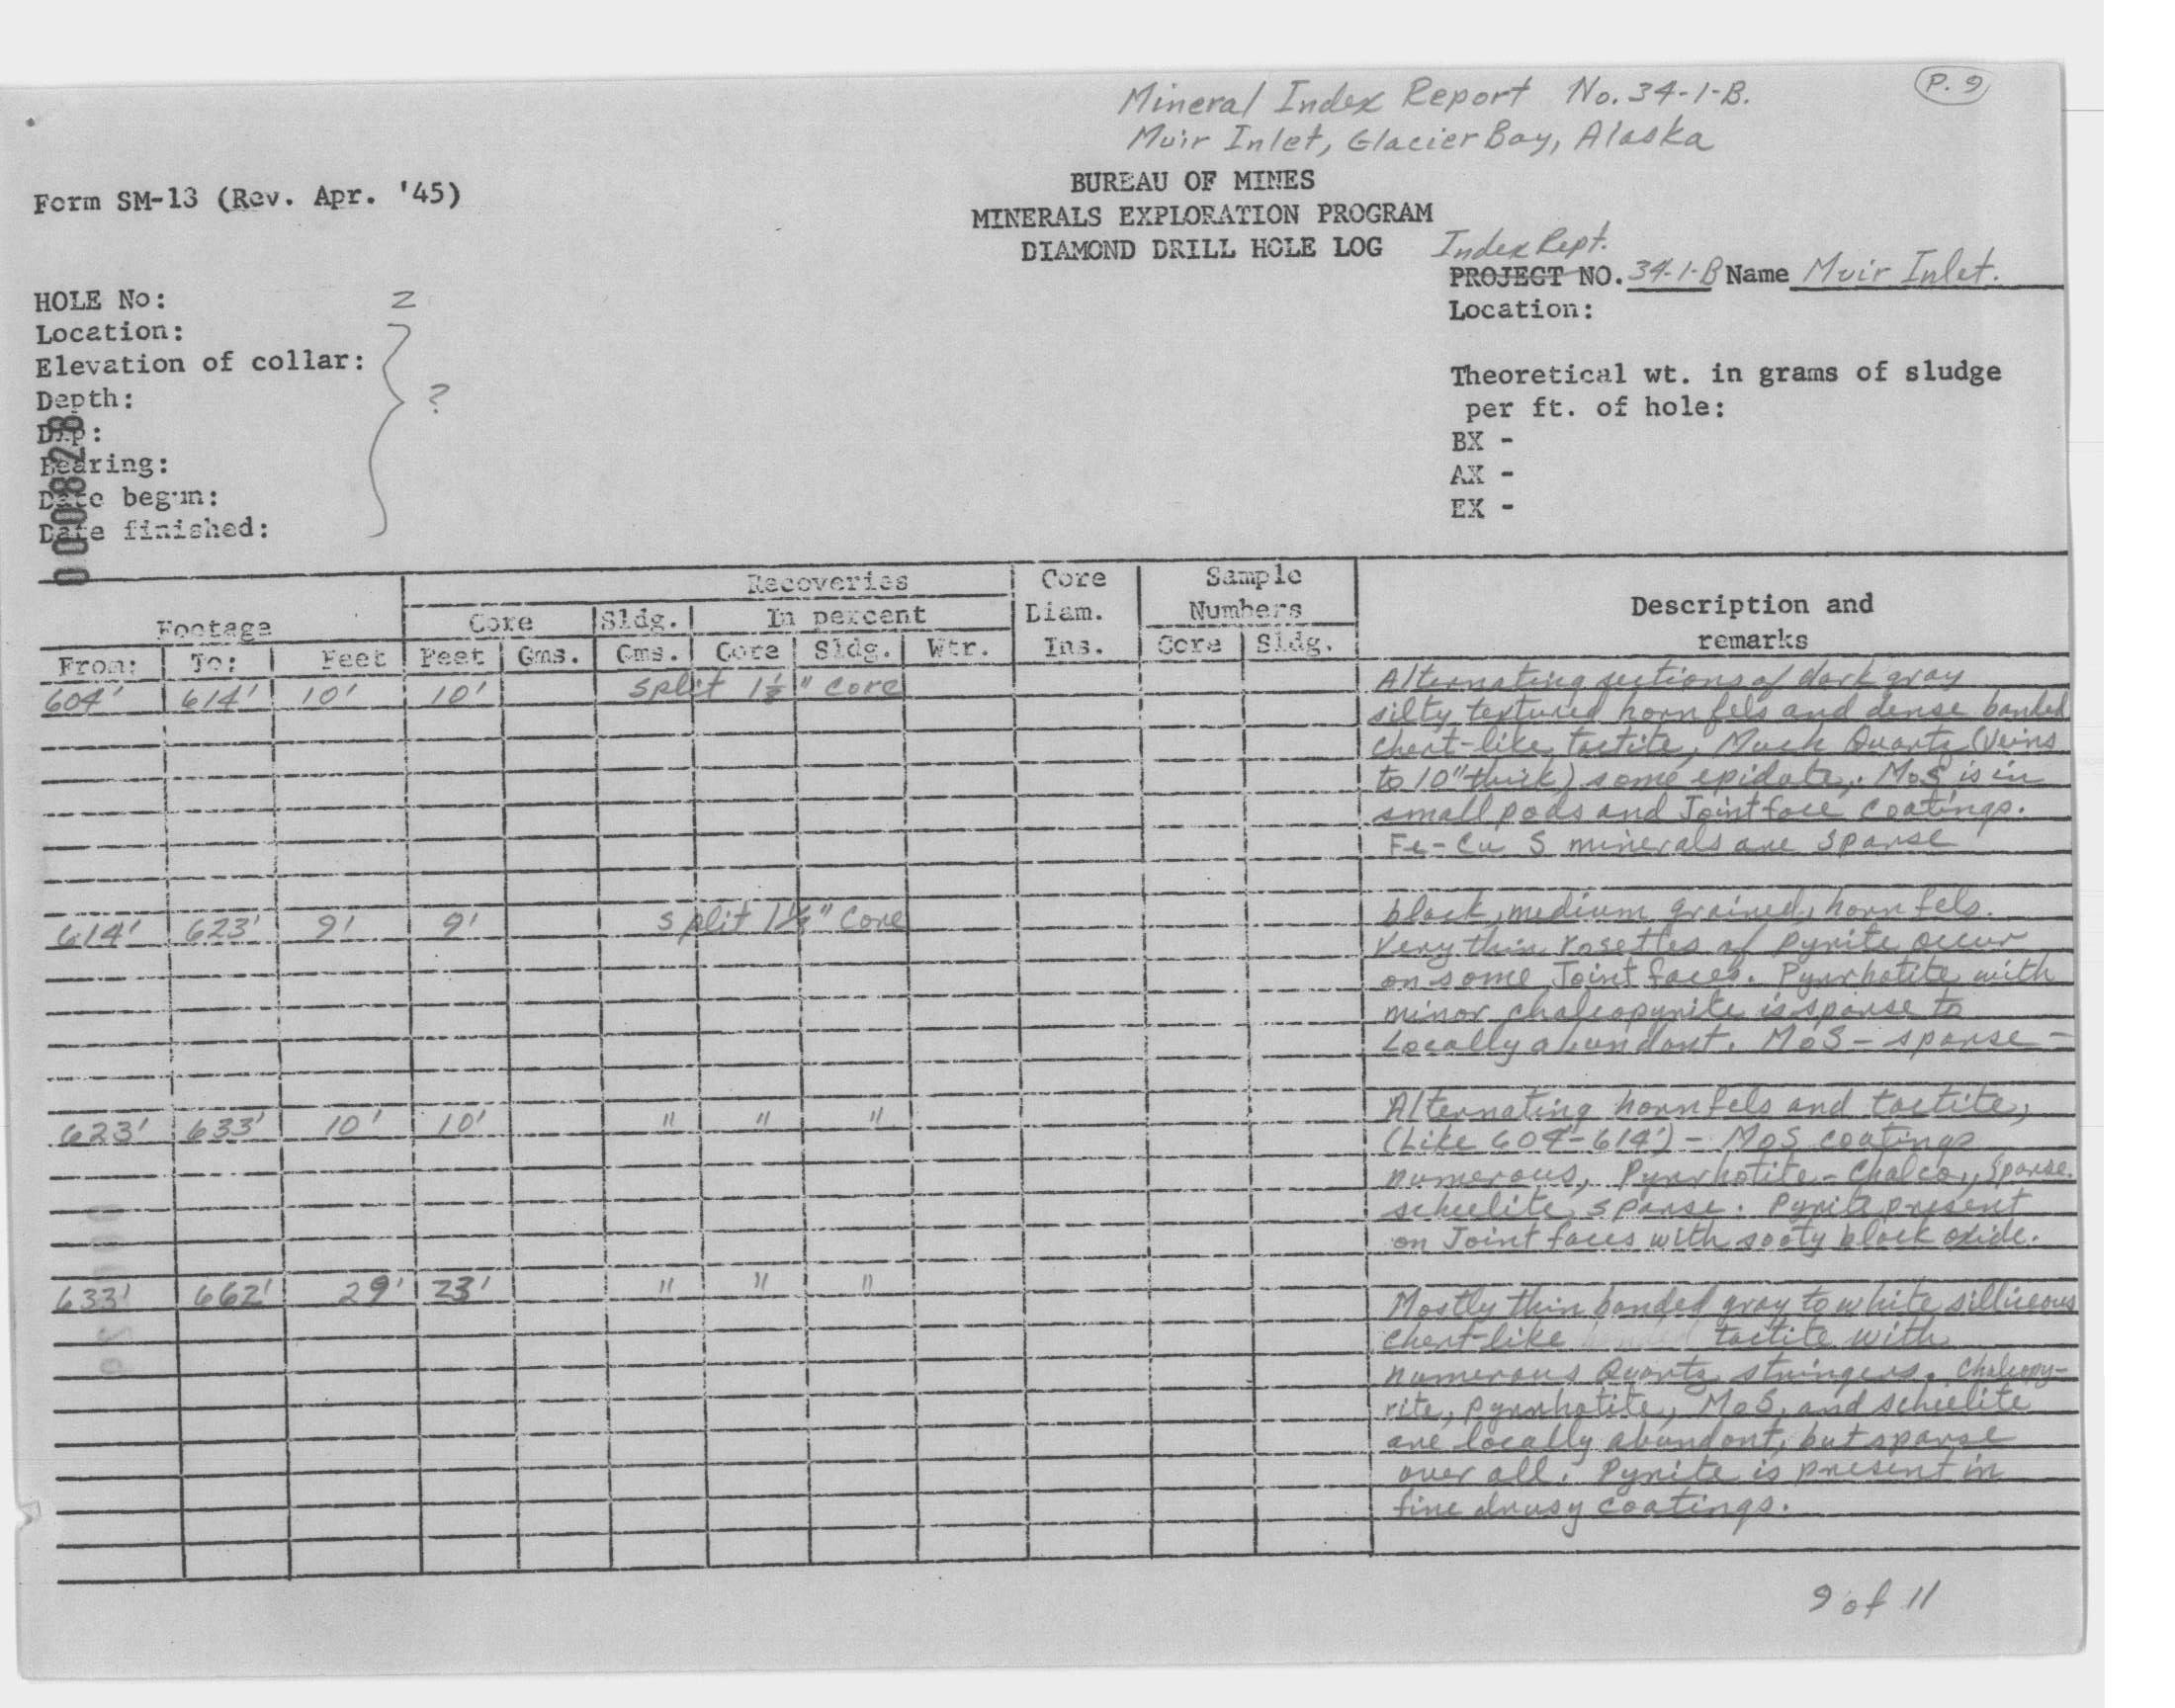 Mineral Index Report No. 34-1-B.
P. 9
Muir Inlet, Glacier Bay, Alaska
BUREAU OF MINES
Form SM-13 (Rev. Apr. '45)
MINERALS EXPLORATION PROGRAM
DIAMOND DRILL HOLE LOG
Index Rept.
PROJECT NO. 34-1-B Name Muir Inlet.
HOLE No: 2
Location:
Location:
Elevation of collar:
Depth:
?
Dip:
Bearing:
Date begun:
Date finished:
0008228
Theoretical wt. in grams of sludge
per ft. of hole:
BX -
AX -
EX -
Recoveries
Core
Sample
Footage
Core
Sldg.
In percent
Diam.
Numbers
Description and
From: To: Feet Feet Gms. Gms. Core Sldg. Wtr. Ins. Core Sldg.
remarks
604' 614' 10' 10' split 1⅛" core
Alternating sections of dark gray
silty textured hornfels and dense banded
chert-like tactite, Much Quartz (Veins
to 10" thick) some epidote. MoS is in
small pods and Joint face coatings.
Fe-Cu S minerals are sparse
614' 623' 9' 9' split 1⅛" core
black, medium grained, hornfels.
Very thin rosettes of pyrite occur
on some Joint faces. Pyrrhotite with
minor chalcopyrite is sparse to
Locally abundant. MoS - sparse -
623' 633' 10' 10' " " "
Alternating hornfels and tactite,
(Like 604'-614') - MoS coatings
numerous, Pyrrhotite - Chalco., sparse.
scheelite sparse. Pyrite present
on Joint faces with sooty black oxide.
633' 662' 29' 23' " " "
Mostly thin banded gray to white silliceous
chert-like tactite with
numerous Quartz stringers. Chalcopy-
rite, pyrrhotite, MoS, and scheelite
are locally abundant, but sparse
over all. Pyrite is present in
fine drusy coatings.
9 of 11